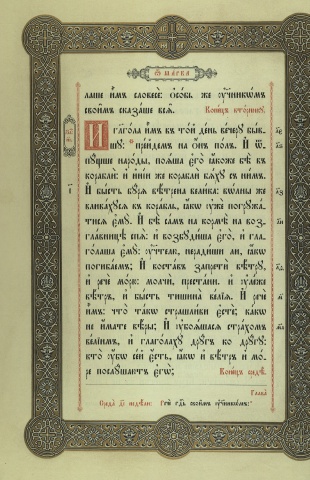 Ѿ МАРКА
лаше и҆̀мъ словесѐ: ѻ҆со́бь же ᲂу҆чн҃кѡ́мъ
свои̑мъ сказа́ше всѧ̑. Коне́цъ вто́рникꙋ.
И гл҃го́ла и҆̀мъ въ то́й де́нь ве́черꙋ бы́в-
шꙋ: пре́йдемъ на ѻ҆́нъ по́лъ. И҆ ѿ-
пꙋ́щше наро́ды, поѧ́ша є҆го̀ ꙗ҆́коже бѣ̀ въ
кораблѝ: и҆ и҆ні́и же кораблѝ бѧ́хꙋ съ ни́мъ.
И҆ бы́сть бꙋ́рѧ вѣ́трена вели́ка: вѡ́лны же
влива́хꙋсѧ въ кора́бль, ꙗ҆́кѡ ᲂу҆жѐ погрꙋжа́-
тисѧ є҆мꙋ̀. И҆ бѣ̀ са́мъ на кормѣ̀ на воз-
гла́вницѣ спѧ̀: и҆ возбꙋди́ша є҆го̀, и҆ гл҃-
го́лаша є҆мꙋ̀: ᲂу҆чт҃лю, не ради́ши ли, ꙗ҆́кѡ
погиба́емъ; И҆ воста́въ запретѝ вѣ́трꙋ,
и҆ речѐ мо́рю: молчѝ, преста́ни. и҆ ᲂу҆ле́же
вѣ́тръ, и҆ бы́сть тишина̀ ве́лїѧ. И҆ речѐ
и҆̀мъ: что̀ та́кѡ страшли́ви є҆стѐ; ка́кѡ
не и҆́мате вѣ́ры; И҆ ᲂу҆боѧ́шасѧ стра́хомъ
ве́лїимъ, и҆ глаго́лахꙋ дрꙋ́гъ ко дрꙋ́гꙋ:
кто̀ ᲂу҆̀бѡ се́й є҆́сть, ꙗ҆́кѡ и҆ вѣ́тръ и҆ мо́-
ре послꙋ́шаютъ є҆гѡ̀; Коне́цъ средѣ̀.
Глава̀